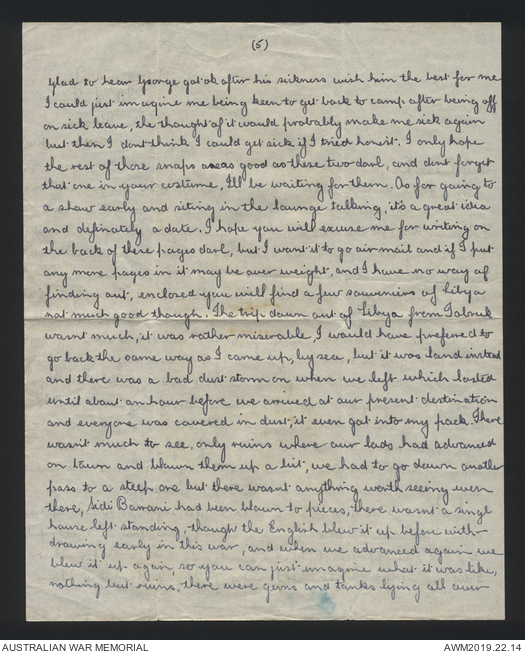 (5)
Glad to hear George got ok after his sickness wish him the best for me
I could just imagine me being keen to get back to camp after being off
on sick leave, the thought of it would probably make me sick again
but then I dont think I could get sick if I tried honest. I only hope
the rest of those snaps are as good as these two darl, and dont forget
that one in your costume, I'll be waiting for them. As for going to
a show early and siting in the lounge talking, it's a great idea
and definately a date. I hope you will excuse me for writing on
the back of these pages darl, but I want it to go air mail and if I put
any more pages in it may be over weight, and I have no way of
finding out, enclosed you will find a few souveniers of Libya
not much good though. The trip down out of Libya from Tobruk
wasnt much, it was rather miserable, I would have prefered to
go back the same way as I came up, by sea, but it was land instead
and there was a bad dust storm on when we left which lasted
until about an hour before we arrived at our present destination
and everyone was covered in dust, it even got into my pack. There
wasn't much to see, only ruins where our lads had advanced
on town and blown them up a bit, we had to go down another
pass to a steep one but there wasnt anything worth seeing even
there, Sidi Barani had been blown to pieces, there wasnt a singl
house left standing, though the English blew it up before with-
drawing early in this war, and when we advanced again we
blew it up again, so you can just imagine what it was like,
nothing but ruins, there were guns and tanks lying all over
AUSTRALIAN WAR MEMORIAL
AWM2019.22.14